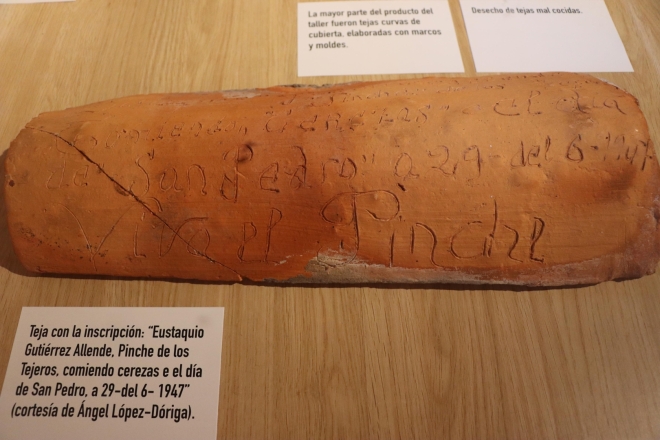 La mayor parte del producto del
taller fueron tejas curvas de
cubierta, elaboradas con marcos
y moldes.
Desecho de tejas mal cocidas.
cerezas el dia
de San Pedro" a 29-del 6-1947
Viva el Pinche
Teja con la inscripción: "Eustaquio
Gutiérrez Allende, Pinche de los
Tejeros, comiendo cerezas e el día
de San Pedro, a 29-del 6- 1947"
(cortesía de Ángel López-Dóriga).